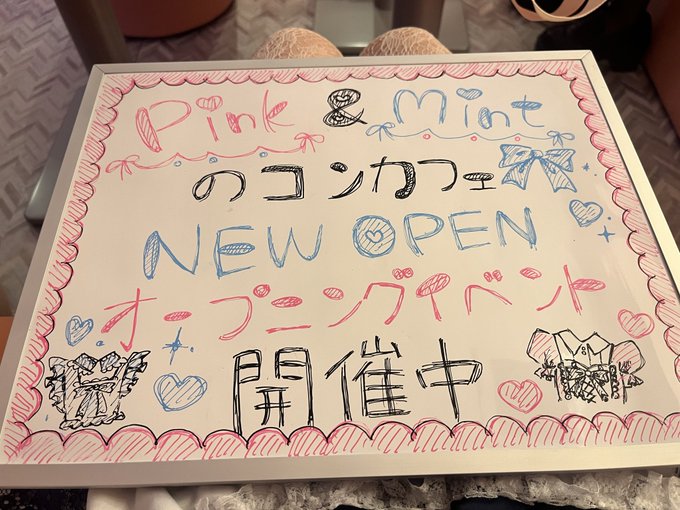 Pink & Mint
のコンカフェ
NEW OPEN
オープニングイベント
開催中